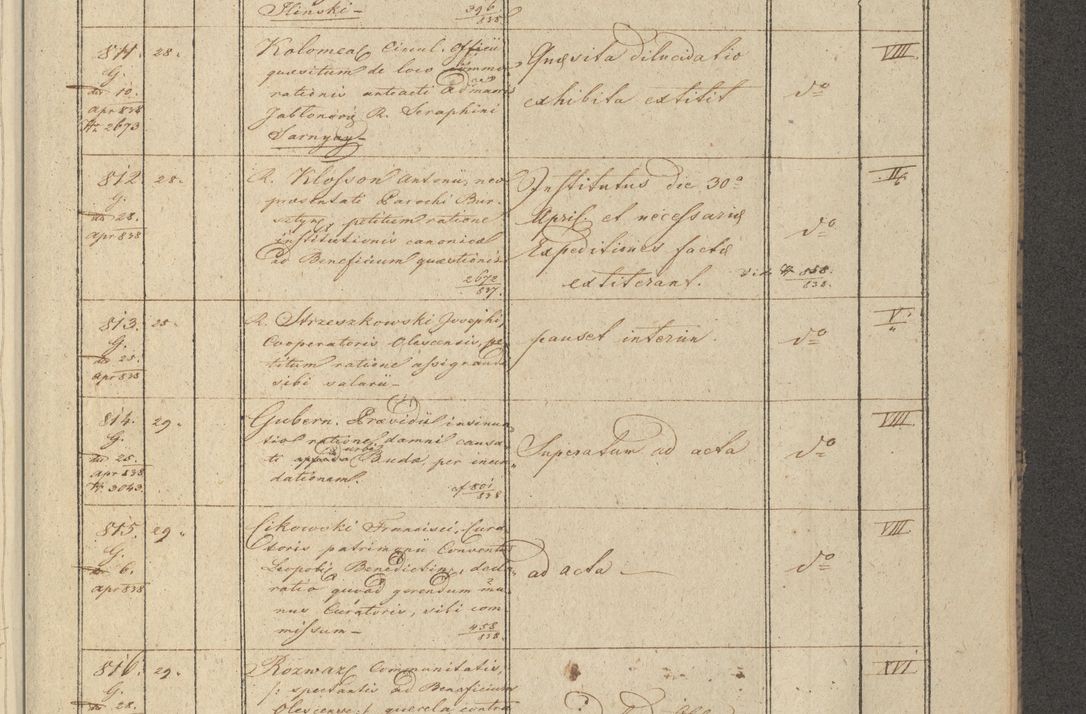 Ilinski –
396
838
811. 28.
G.
dto 10.
Apr 838
№ 2673
Kolomeæ Circul. Officii
quæsitum de loco commo
rationis anteacti Administratoris
Jabłonów R. Seraphini
Sarnyay
Quæsita dilucidatio
exhibita extitit
do
VIII
812. 28.
G.
dto 28.
Apr 838
R. Klosson Antonii, neo
præsentati Parochi Bur-
sztyn, petitum ratione
institutionis canonicæ
ad Beneficium quæstionis
2672
837.
Institutus die 30a
April. et necessariæ
Expeditiones factæ
extiterant.
do
vid № 858
838.
II
813. 28.
G.
dto 25.
Apr 838
R. Strzeszkowski Josephi,
Cooperatoris Olescensis, pe-
titum ratione assignandi
sibi salarii –
pauset interim.
do
V.
814. 29.
G.
dto 25.
Apr 838
№ 3043.
Gubern. Præsidii insinua
tio ratione damni causa-
ti urbi Budæ per inun
dationem.
cf 801
838
Superatum ad acta
do
VIII
815. 29.
G.
dto 6.
Apr 838
Cikowski Francisci, Cura
toris patrimonii Conventus
Leopoli Benedictin., decla
ratio quoad gerendum mu-
nus Curatoris, sibi com
missum –
458
838.
ad acta –
do
VIII
816. 29.
G.
dto 28.
Rozwaz Communitatis,
/: spectantis ad Beneficium
Olescense :/ querela contra
XVI